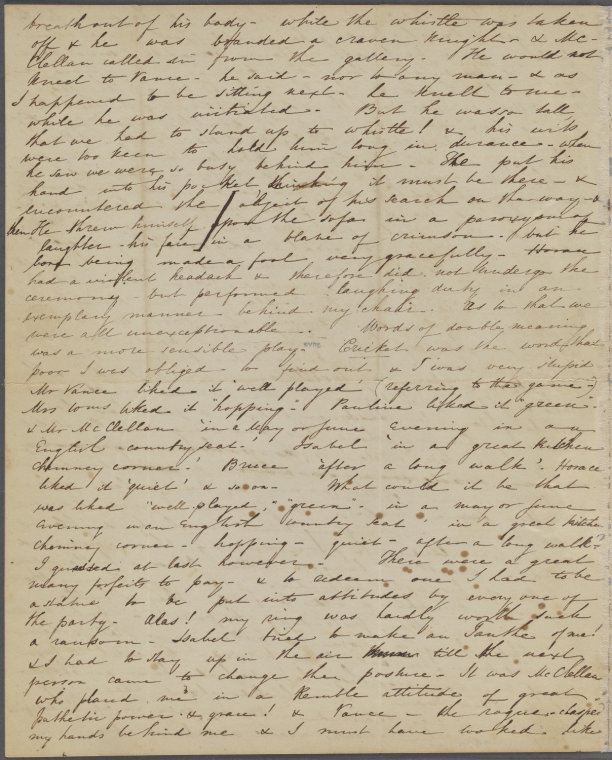 breath out of his body - while the whistle was taken
off & he was branded a craven knight - & Mc-
Clellan called in from the gallery. He would not
kneel to Vance - he said - nor to any man - & as
I happened to be sitting next - he knelt to me -
while he was initiated - But he was so tall
that we had to stand up to whistle! & his wits
were too keen to hold him long in durance - when
he saw we were so busy behind him - He put his
hand into his pocket thinking it must be there - &
encountered the object of his search on the way - &
then He threw himself upon the sofa in a paroxysm of
laughter - his face in a blaze of crimson - but he
bore being made a fool very gracefully - Horace
had a violent headach & therefore did not undergo the
ceremony - but performed laughing duty in an
exemplary manner behind my chair - As to that we
were all unexceptionable - Words of double meaning
was a more sensible play - Cricket was the word that
poor I was obliged to find out & I was very stupid
Mr Vance liked it "well played" (referring to the game -)
Mrs liked it "hopping" - Pauline liked it "green" -
& Mr McClellan "in a May or June evening in an
English country seat -' Isabel 'in a great kitchen
chimney corner -' Bruce 'after a long walk' - Horace
liked it 'quiet' & so on - What could it be that
was liked "well played" "green - in a may or June
evening in an English country seat - in a great kitchen
chimney corner - hopping - quiet - after a long walk -?
I guessed at last however - There were a great
many forfeits to pay - & to redeem one I had to be
a statue to be put into attitudes by every one of
the party - Alas! my ring was hardly worth such
a ransom - Isabel tried to make an Ianthe of me!
& I had to stay up in the air till the next
person came to change the posture - It was McClellan
who placed me in a Kemble attitude of great
pathetic power & grace! & Vance - the rogue - clasped
my hands behind me & I must have looked like